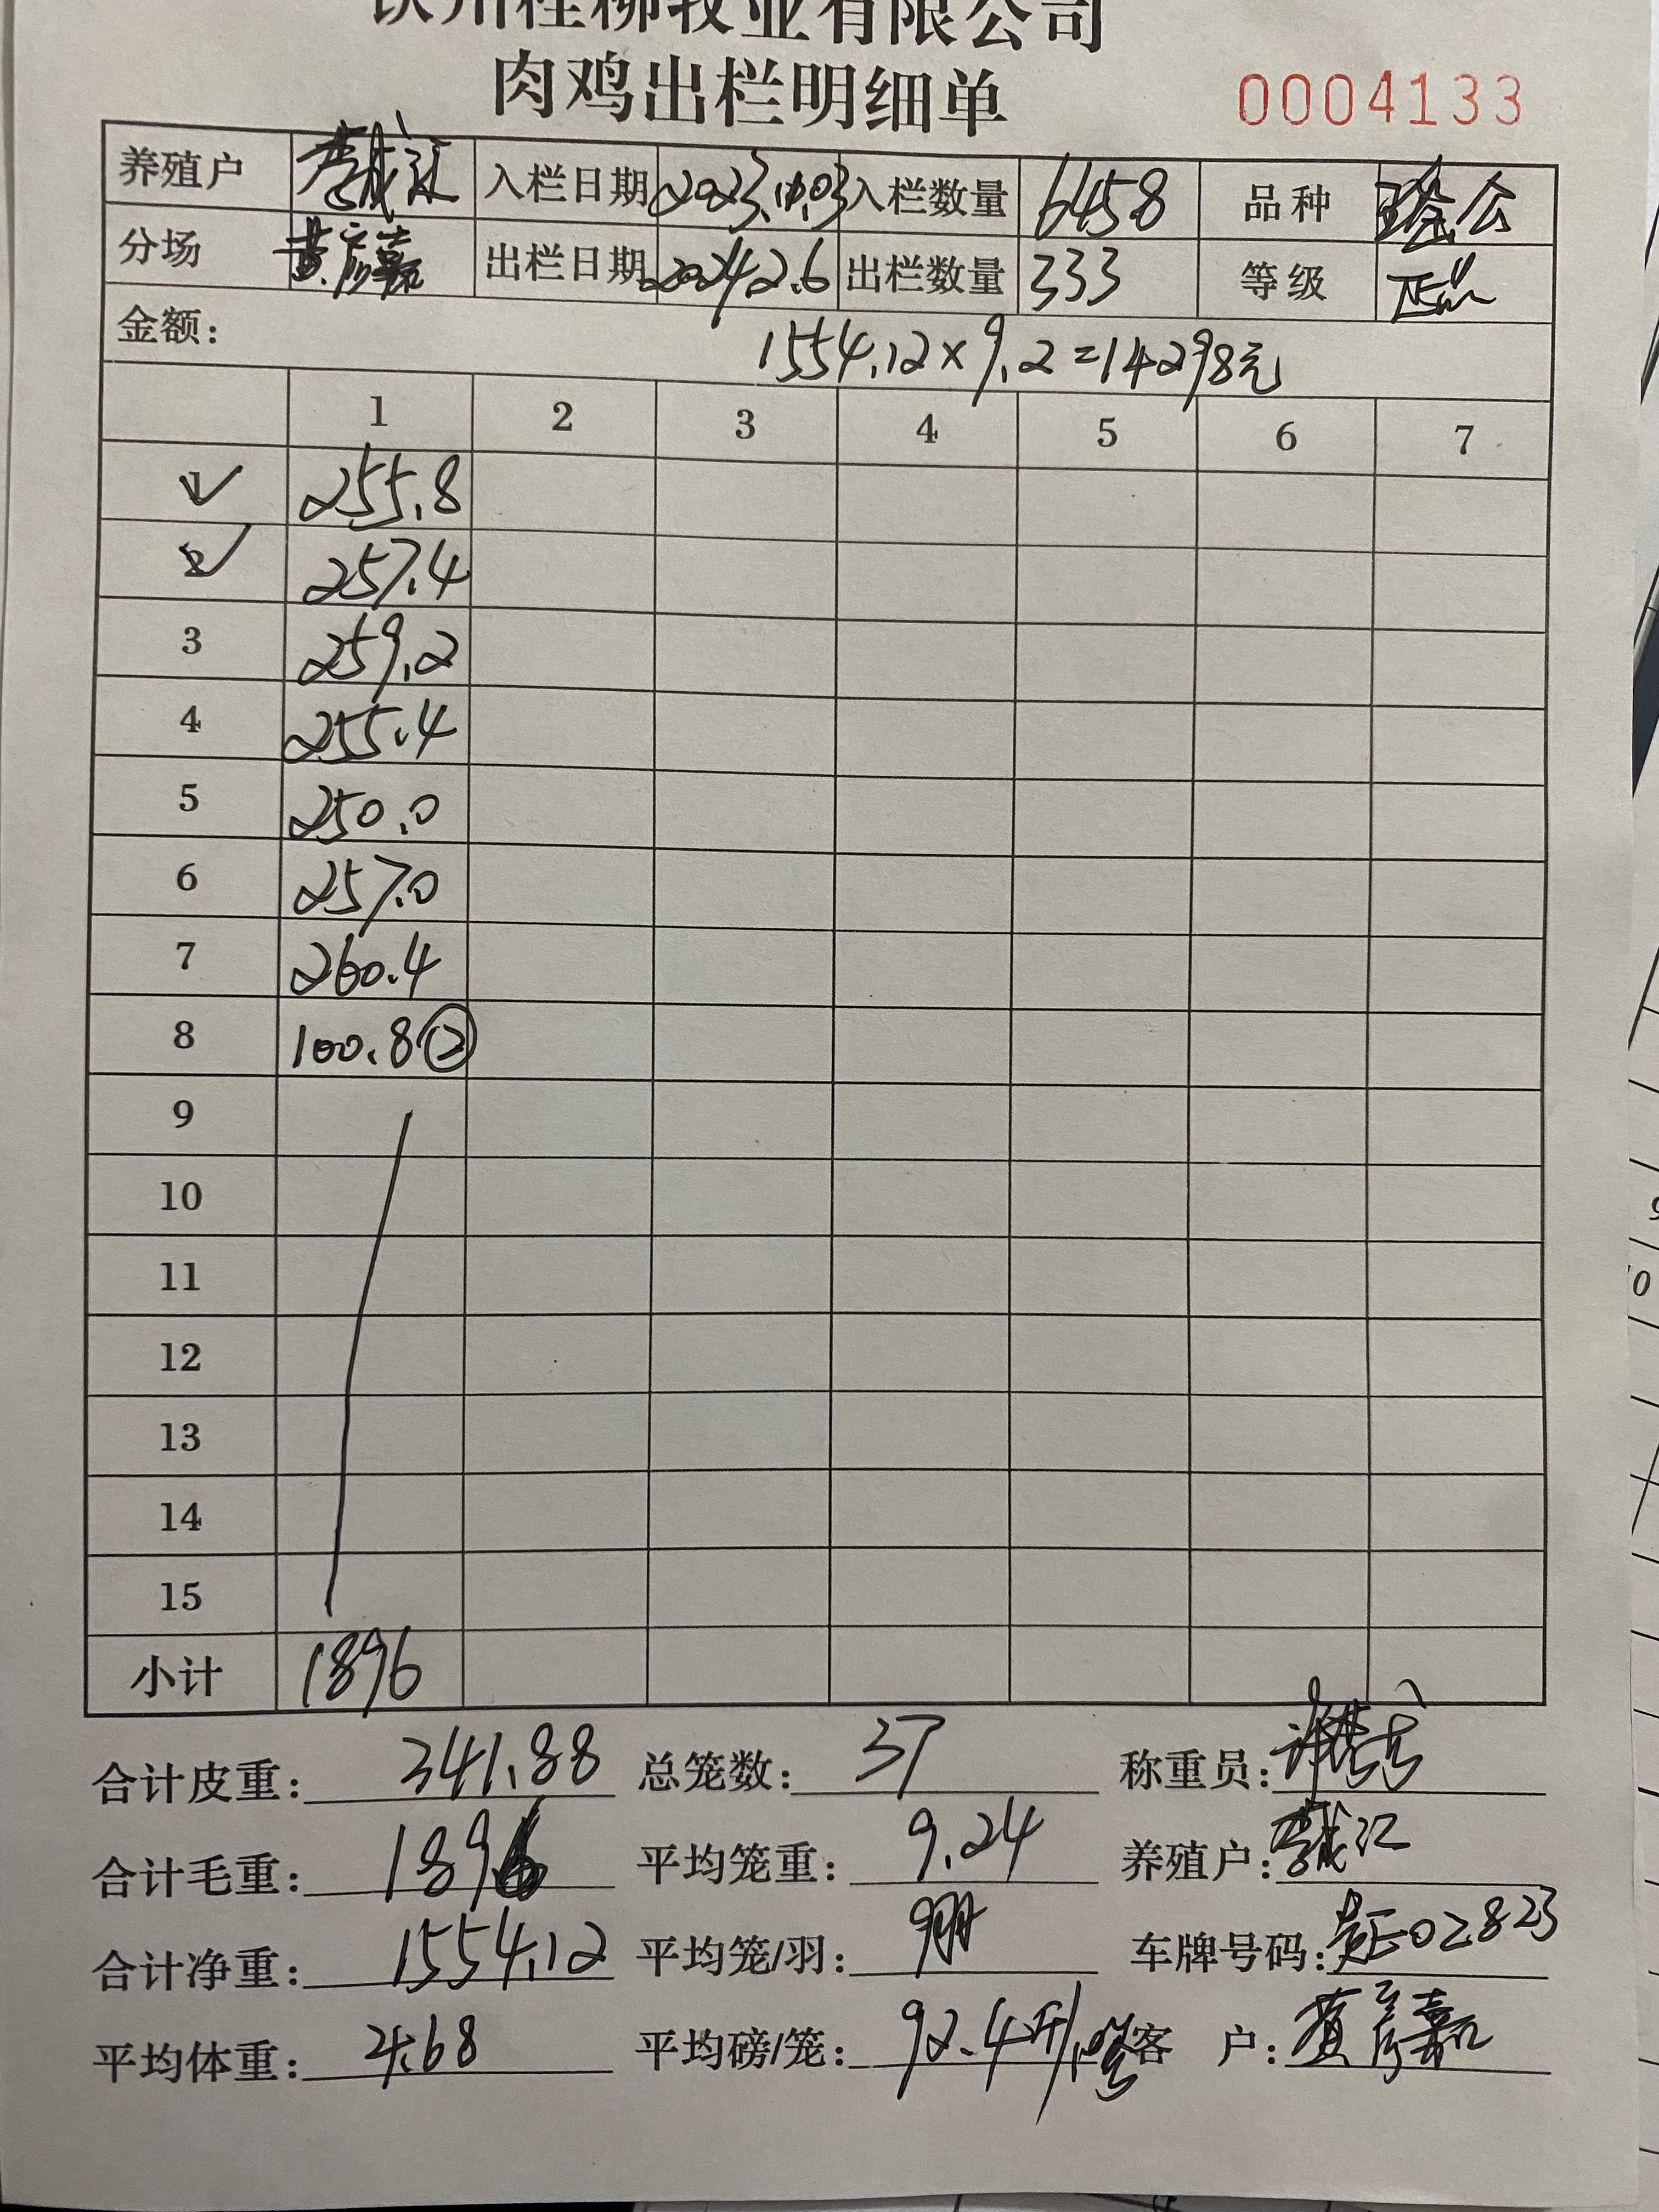 钦州桂柳牧业有限公司
肉鸡出栏明细单 0004133
养殖户 入栏日期 2023.10.03 入栏数量 6458 品种 公
分场 黄彦嘉 出栏日期 2024.2.6 出栏数量 333 等级 正品
金额: 1554.12×9.2=14298元
1 2 3 4 5 6 7
1 255.8
2 257.4
3 259.2
4 255.4
5 250.0
6 257.0
7 260.4
8 100.8 ②
9
10
11
12
13
14
15
小计 1896
合计皮重: 341.88 总笼数: 37 称重员:
合计毛重: 1896 平均笼重: 9.24 养殖户:
合计净重: 1554.12 平均笼/羽: 9羽 车牌号码: 02823
平均体重: 4.68 平均磅/笼: 92.4斤/ 客 户: 黄彦嘉